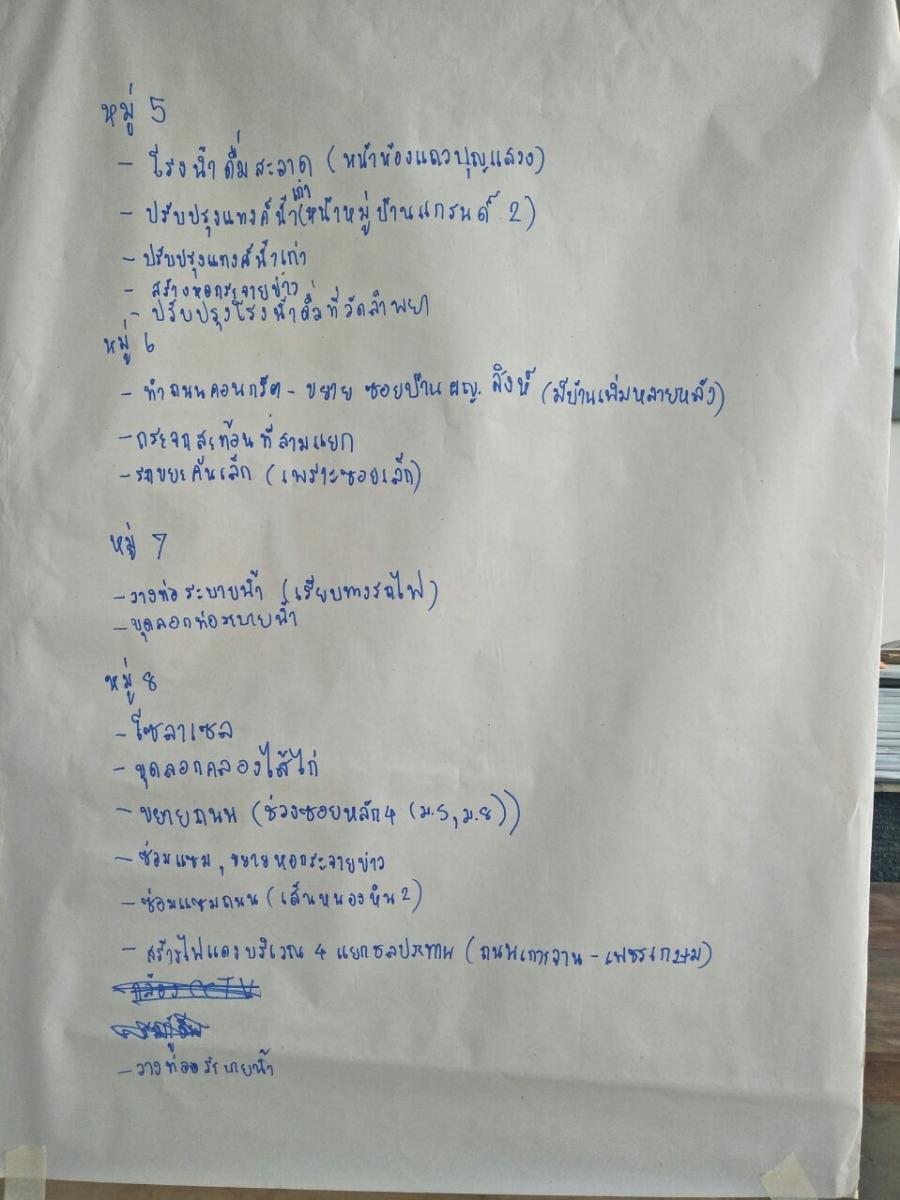 หมู่ 5
- โรงน้ำดื่มสะอาด (หน้าห้องแถวบุญแสวง)
- ปรับปรุงแทงค์น้ำเก่า (หน้าหมู่บ้านแกรนด์ 2)
- ปรับปรุงแทงค์น้ำเก่า
- สร้างหอกระจายข่าว
- ปรับปรุงโรงน้ำดื่มที่วัดลำพยา
หมู่ 6
- ทำถนนคอนกรีต - ขยาย ซอยบ้าน ผญ. สิงห์ (มีบ้านเพิ่มหลายหลัง)
- กระจกสะท้อนที่สามแยก
- รถขยะคันเล็ก (เพราะซอยเล็ก)
หมู่ 7
- วางท่อระบายน้ำ (เรียบทางรถไฟ)
- ขุดลอกท่อระบายน้ำ
หมู่ 8
- โซลาเซล
- ขุดลอกคลองไส้ไก่
- ขยายถนน (ช่วงซอยหลัก 4 (ม.5, ม.8))
- ซ่อมแซม, ขยายหอกระจายข่าว
- ซ่อมแซมถนน (เส้นหนองหิน 2)
- สร้างไฟแดงบริเวณ 4 แยกชลประทาน (ถนน - เพชรเกษม)
กล้อง CCTV
- วางท่อระบายน้ำ